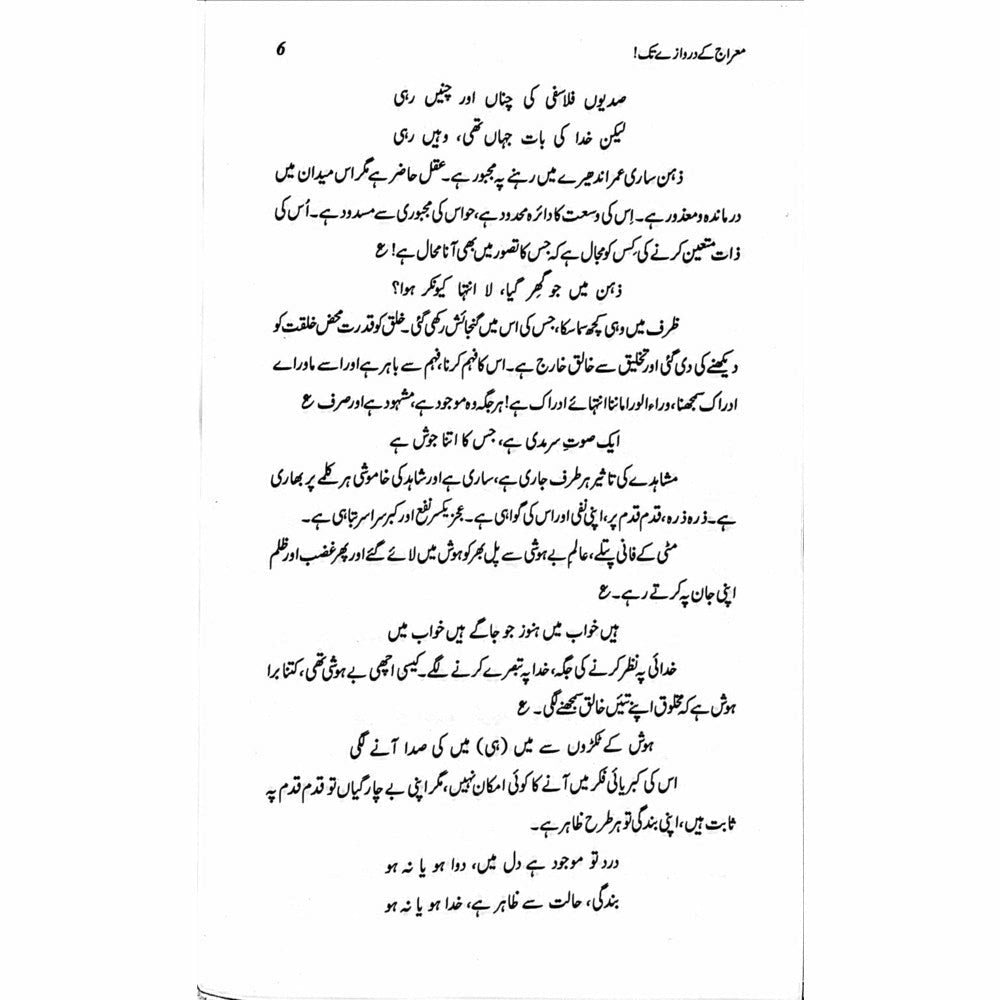 معراج کے دروازے تک!
6
صدیوں فلاسفی کی چناں اور چنیں رہی
لیکن خدا کی بات جہاں تھی، وہیں رہی
ذہن ساری عمر اندھیرے میں رہنے پہ مجبور ہے۔ عقل حاضر ہے مگر اس میدان میں
درماندہ و معذور ہے۔ اِس کی وسعت کا دائرہ محدود ہے، جو اس کی مجبوری سے مسدود ہے۔ اُس کی
ذات متعین کرنے کی کِس کو مجال ہے کہ جس کا تصور میں بھی آنا محال ہے! ع
ذہن میں جو گِھر گیا، لا انتہا کیونکر ہوا؟
ظرف میں وہی کچھ سما سکا، جس کی اس میں گنجائش رکھی گئی۔ خلق کو قدرت محض خلقت کو
دیکھنے کی دی گئی اور تخلیق سے خالق خارج ہے۔ اس کا فہم کرنا، فہم سے باہر ہے اور اسے ماورائے
ادراک سمجھنا، وراء الورا ماننا انتہائے ادراک ہے! ہر جگہ وہ موجود ہے، مشہود ہے اور صرف ع
ایک صوتِ سرمدی ہے، جس کا اتنا جوش ہے
مشاہدے کی تاثیر ہر طرف جاری ہے، ساری ہے اور شاہد کی خاموشی ہر کلمے پر بھاری
ہے۔ ذرہ ذرہ، قدم قدم پر، اپنی نفی اور اس کی گواہی ہے۔ عجز یکسر نفع اور کبر سراسر تباہی ہے۔
مٹی کے فانی پتلے، عالمِ بے ہوشی سے پل بھر کو ہوش میں لائے گئے اور پھر غضب اور ظلم
اپنی جان پہ کرتے رہے۔ ع
ہیں خواب میں ہنوز جو جاگے ہیں خواب میں
خدائی پہ نظر کرنے کی جگہ، خدا پہ تبصرے کرنے لگے۔ کیسی اچھی بے ہوشی تھی، کتنا برا
ہوش ہے کہ مخلوق اپنے تئیں خالق سمجھنے لگی۔ ع
ہوش کے ٹکڑوں سے میں (ہی) میں کی صدا آنے لگی
اس کی کبریائی فکر میں آنے کا کوئی امکان نہیں، مگر اپنی بے چارگیاں تو قدم قدم پہ
ثابت ہیں، اپنی بندگی تو ہر طرح ظاہر ہے۔
درد تو موجود ہے دل میں، دوا ہو یا نہ ہو
بندگی، حالت سے ظاہر ہے، خدا ہو یا نہ ہو